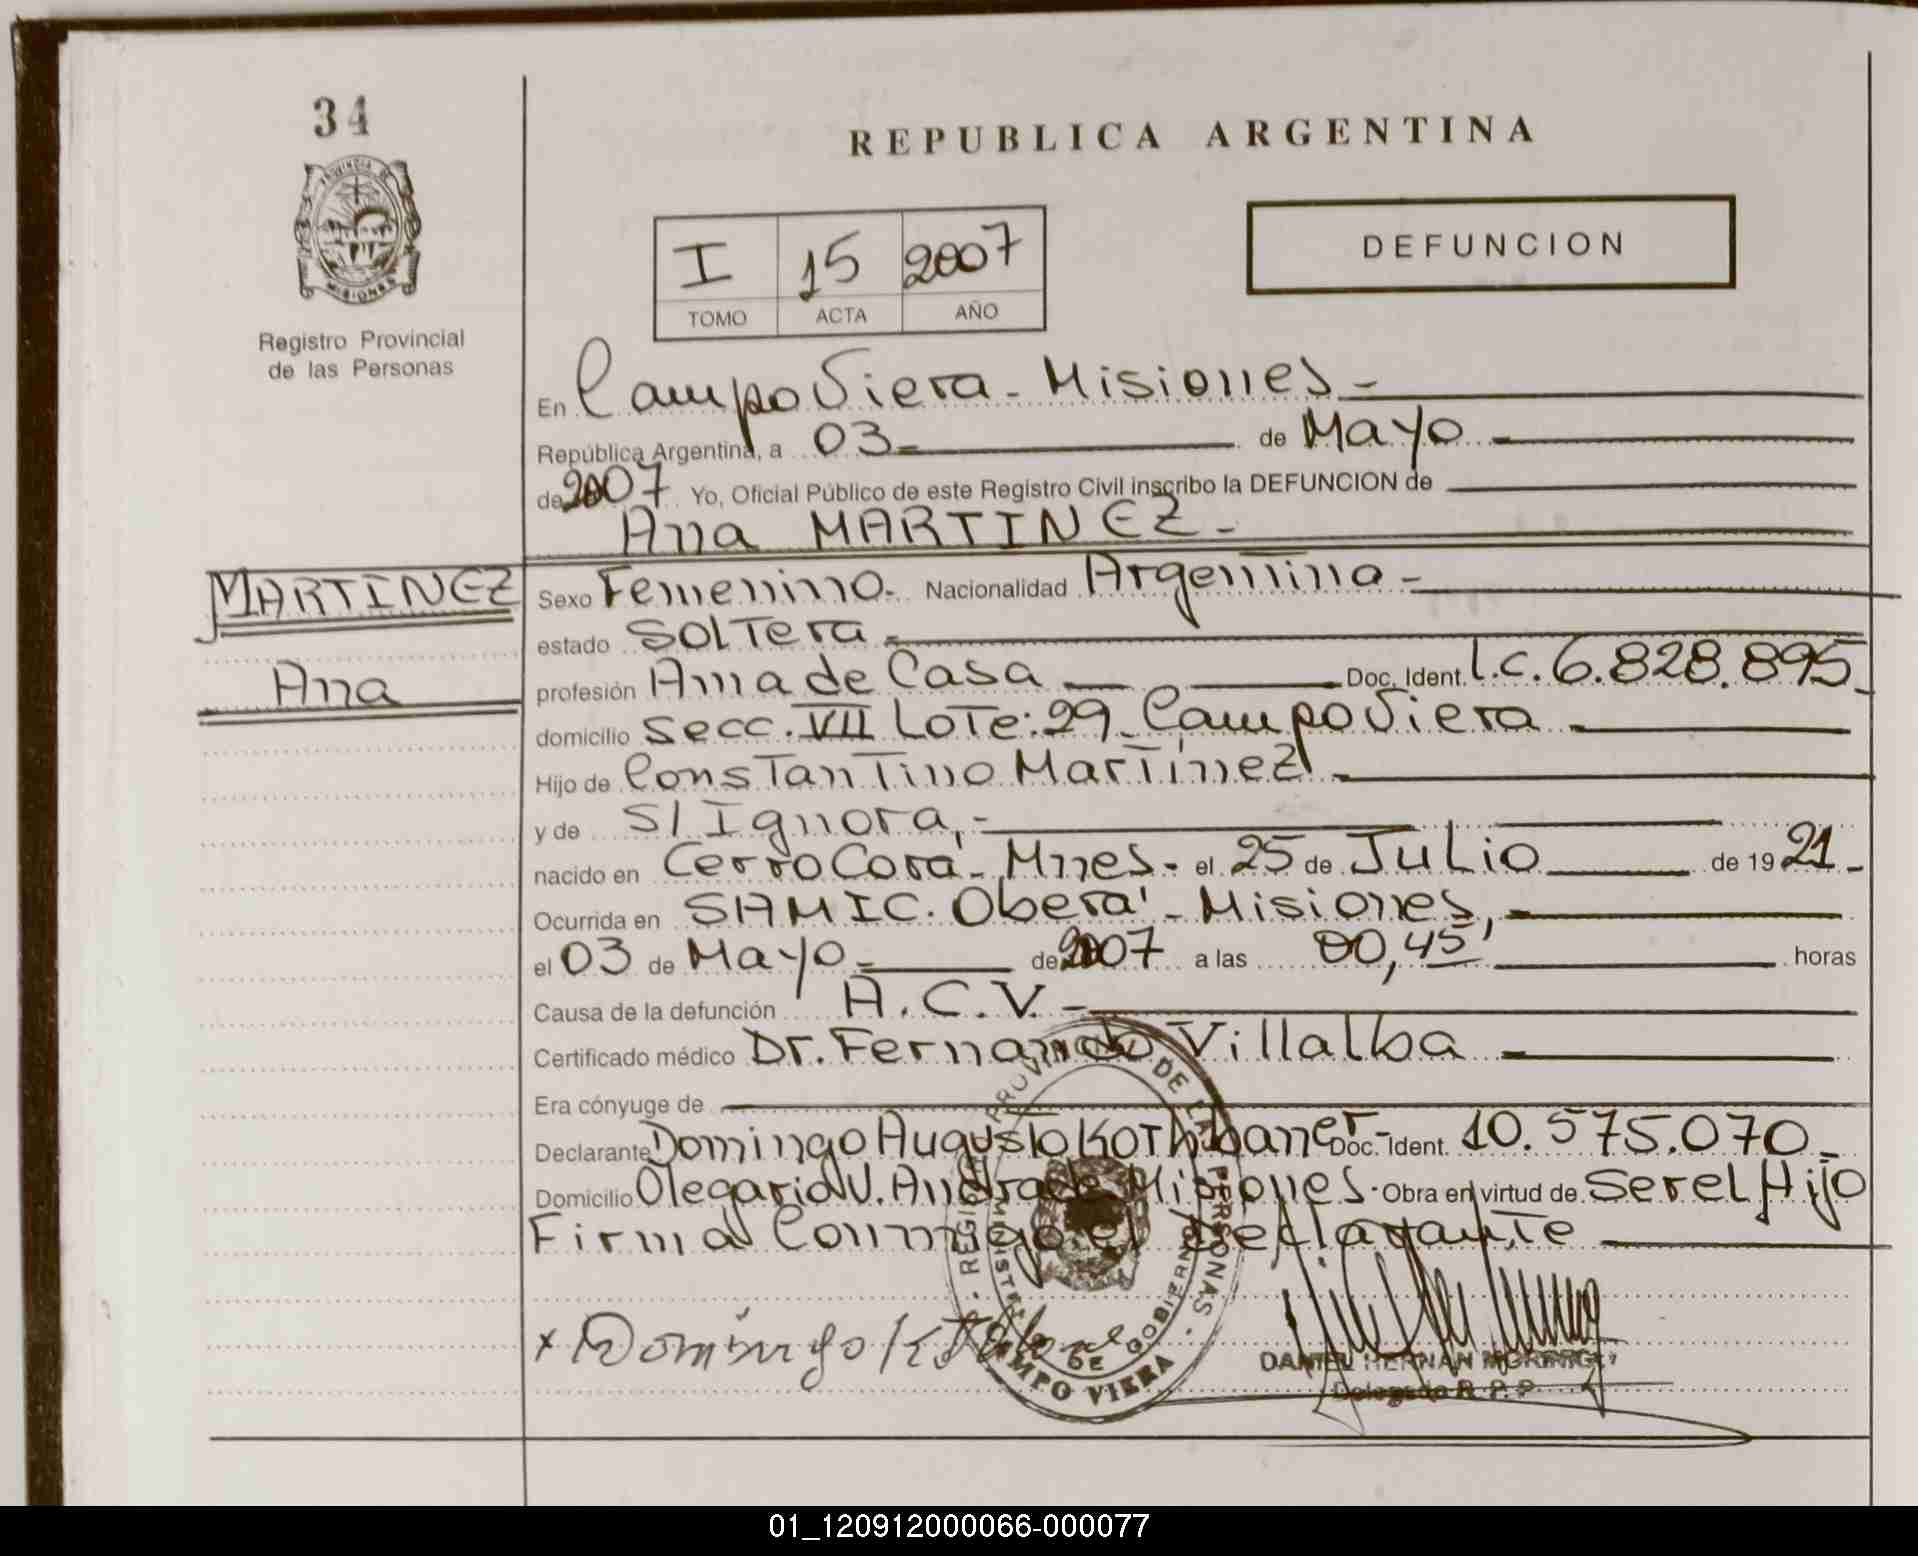 34
PROVINCIA DE
MISIONES
Registro Provincial
de las Personas
REPUBLICA ARGENTINA
I 15 2007
TOMO ACTA AÑO
DEFUNCION
En Campo Viera - Misiones -
República Argentina, a 03 - de Mayo
de 2007 Yo, Oficial Público de este Registro Civil inscribo la DEFUNCION de
Ana MARTINEZ -
MARTINEZ
Ana
Sexo Femenino - Nacionalidad Argentina -
estado Soltera -
profesión Ama de Casa Doc. Ident. L.C. 6.828.895 -
domicilio Secc. VII Lote: 29 - Campo Viera -
Hijo de Constantino Martínez -
y de S/ Ignora, -
nacido en Cerro Corá - Mnes - el 25 de Julio de 19 21 -
Ocurrida en SAMIC. Oberá - Misiones, -
el 03 de Mayo - de 2007 a las 00,45' horas
Causa de la defunción A.C.V. -
Certificado médico Dr. Fernando Villalba -
Era cónyuge de
Declarante Domingo Augusto Kothbaner - Doc. Ident. 10.575.070 -
Domicilio Olegario V. Andrade Misiones - Obra en virtud de Ser el Hijo
Firma Conmigo el Declarante
x Domingo
PROVINCIAL DE LAS PERSONAS
CAMPO VIERA
DANIEL HERNAN
Delegado R.P.P.
01_120912000066-000077